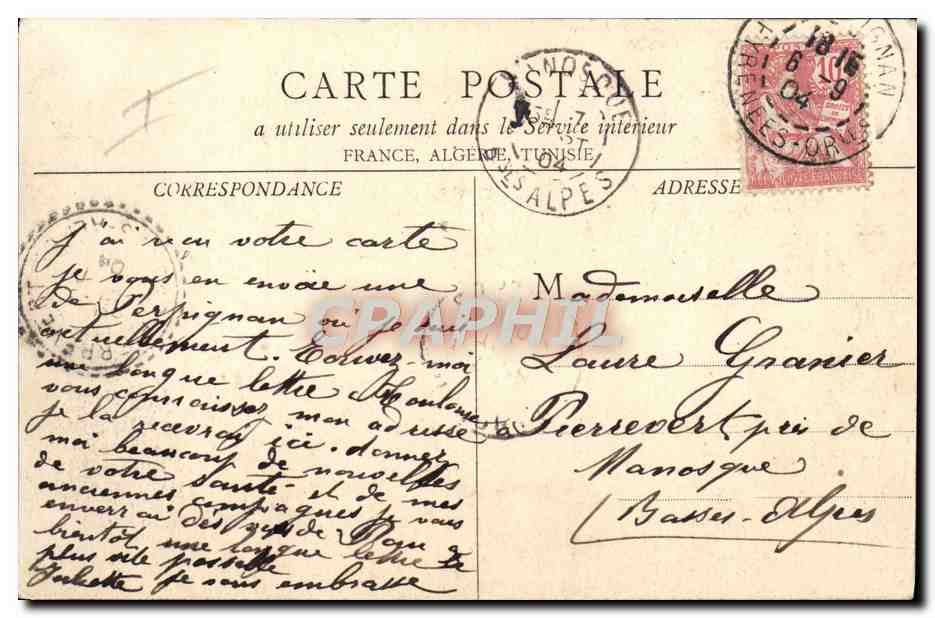 CARTE POSTALE
a utiliser seulement dans le Service intérieur
FRANCE, ALGÉRIE, TUNISIE
CORRESPONDANCE
J'ai reçu votre carte
je vous en envoie une
de Perpignan où je suis
actuellement. Ecrivez-moi
une longue lettre à Toulouse
vous connaissez mon adresse
je la recevrai ici. donnez
moi beaucoup de nouvelles
de votre santé et de mes
anciennes compagnes je vous
enverrai des vues de
bientôt une longue lettre
plus vite possible
Juliette je vous embrasse
ADRESSE
Mademoiselle
Laure Granier
Pierrevert près de
Manosque
(Basses-Alpes
MANOSQUE
7
04
BSES ALPES
PERPIGNAN
18 15
6 -9
04
PYRENEES-ORles
10
CPAPHIL